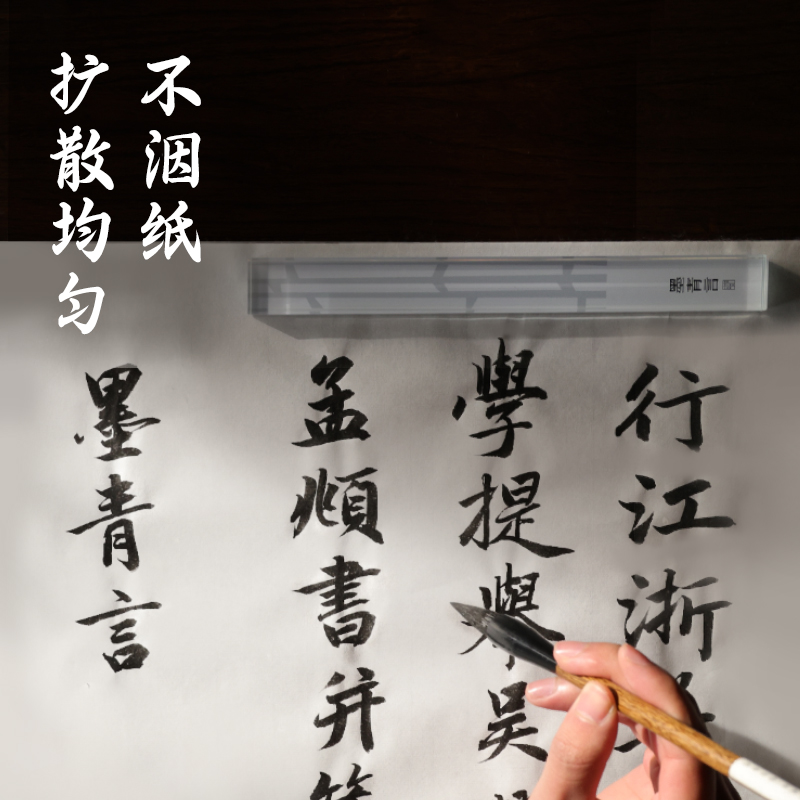 不洇纸
扩散均匀
墨青言
行江浙
學提舉吴
孟頫書并
墨青言